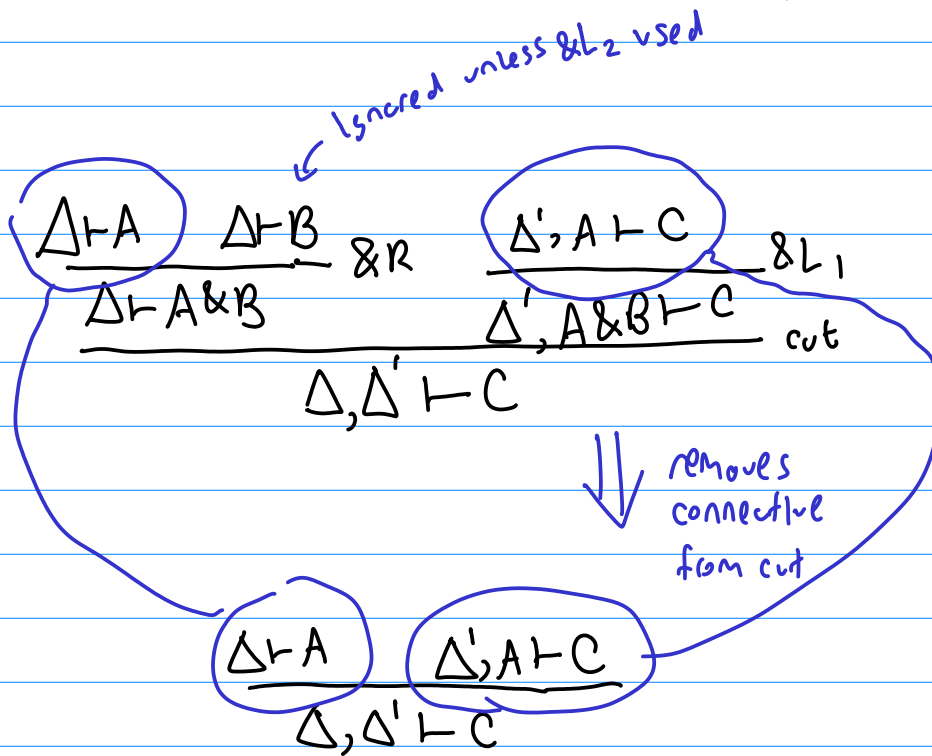 Ignored unless &L₂ used
Δ⊢A Δ⊢B &R Δ', A ⊢ C &L₁
Δ⊢A&B Δ', A&B⊢C cut
Δ,Δ' ⊢ C
⇓ removes
connective
from cut
Δ⊢A Δ', A⊢C
Δ, Δ' ⊢ C